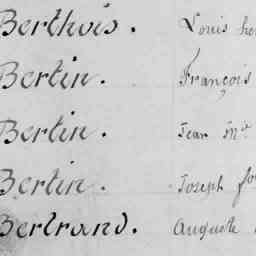 Berthois. Louis
Bertin. François
Bertin. Jean
Bertin. Joseph
Bertrand. Auguste